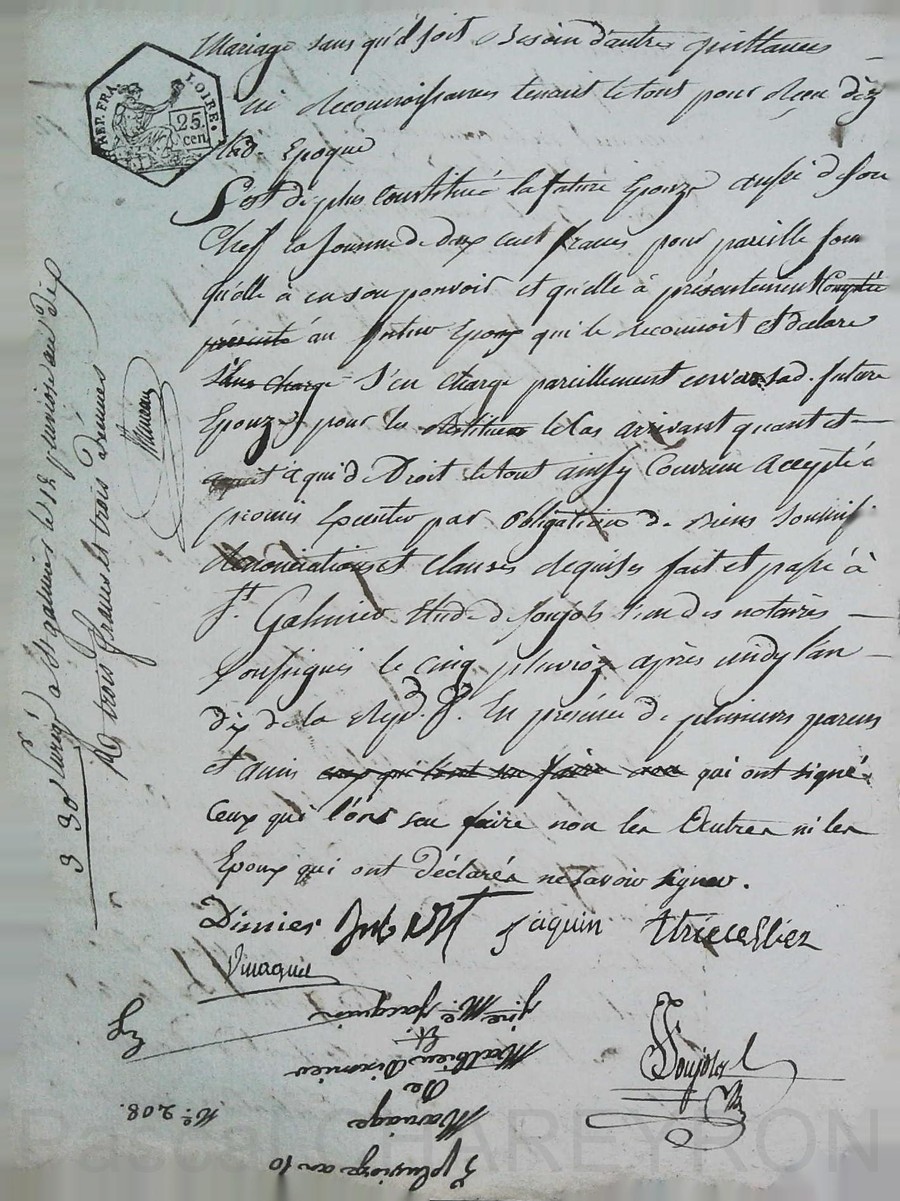 Mariage sans qu'il soit Besoin d'autres quittances
REP. FRA. LOIRE.
25. cen
ni Reconnoissances tenant le tout pour Reçu dèz
lad. Epoque
S'est de plus constituée la future Epouze aussi de son
Chef la somme de dix cent francs pour pareille som
qu'elle à en son pouvoir et qu'elle à présentement Comptée
présenté au futur Epoux qui le Reconnoit Et declare
s'en charge S'en charge pareillement envers sad. future
Epouze pour les Restituer le Cas arrivant quant et
a qui de Droit le tout ainsy Convenu Accepté
promis Executer par obligation de Biens Soumis.
Renonciations et clauses Requises fait et passé à
St. Galmier Etude de Soujols l'un des notaires
Soussignés le cinq pluvioz après midy l'an
dix de la Rep. f. En présence de plusieurs parens
et amis ceux qui l'ont su faire qui ont signé
Ceux qui l'ons seu faire non les Autres ni les
Epoux qui ont déclarés ne savoir signer.
Dimier Jaquin
Soujols
3 30 Enreg.é a St galmier le 12 pluviose an dix
R trois francs trois dixmes
5 pluvioze an 10
Mariage
De
Mathieu Dimier
Et
Jaquin
N.º 208.
Pascal CHAREYRON